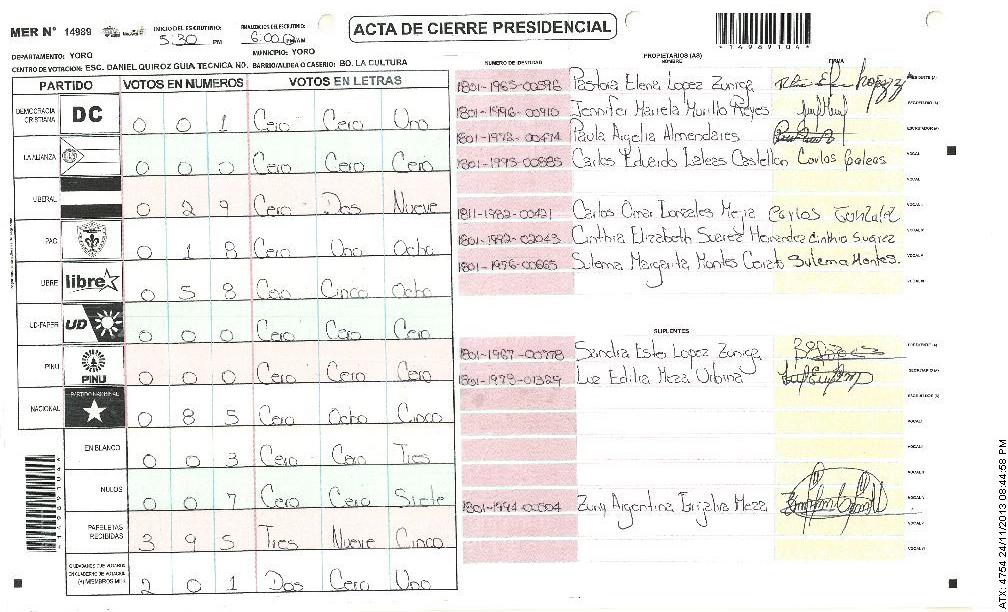 ACTA DE CIERRE PRESIDENCIAL
MER N° 14989
INICIO DEL ESCRUTINIO: 5:30 PM
FINALIZACION DEL ESCRUTINIO: 6:00
DEPARTAMENTO: YORO
MUNICIPIO: YORO
CENTRO DE VOTACION: ESC. DANIEL QUIROZ GUIA TECNICA NO. BARRIO/ALDEA O CASERIO: BO. LA CULTURA
*14989104*
PARTIDO VOTOS EN NUMEROS VOTOS EN LETRAS
DEMOCRACIA CRISTIANA DC 0 0 1 Cero Cero Uno
LA ALIANZA 0 0 0 Cero Cero Cero
LIBERAL 0 2 9 Cero Dos Nueve
PAC 0 1 8 Cero Uno Ocho
LIBRE libre 0 5 8 Cero Cinco Ocho
UD-FAPER UD 0 0 0 Cero Cero Cero
PINU PINU 0 0 0 Cero Cero Cero
NACIONAL PARTIDO NACIONAL 0 8 5 Cero Ocho Cinco
EN BLANCO 0 0 3 Cero Cero Tres
NULOS 0 0 7 Cero Cero Siete
PAPELETAS RECIBIDAS 3 9 5 Tres Nueve Cinco
CIUDADANOS QUE VOTARON EN CUADERNO DE VOTACION (+) MIEMBROS MER 2 0 1 Dos Cero Uno
PROPIETARIOS (AS)
NUMERO DE IDENTIDAD NOMBRE FIRMA
1801-1965-00596 Pastora Elena Lopez Zuniga PRESIDENTE (A)
1801-1996-00910 Jennifer Mariela Murillo Reyes SECRETARIO (A)
1801-1972-00474 Paula Argelia Almendares ESCRUTADOR (A)
1801-1993-00885 Carlos Eduardo Galeas Castellon Carlos Galeas VOCAL
1811-1982-00421 Carlos Omar Gonzales Mejia Carlos Gonzalez
1801-1992-02043 Cinthia Elizabeth Suarez Hernandez Cinthia Suarez
1801-1976-00665 Sulema Margarita Montes Sulema Montes.
SUPLENTES
1801-1967-00778 Sandra Ester Lopez Zuniga PRESIDENTE (A)
1801-1978-01329 Luz Edilia Meza Urbina SECRETARIO (A)
ESCRUTADOR (A)
1801-1994-00504 Argentina Grijalva Meza
ATX: 4754 24/11/2013 08:44:58 PM